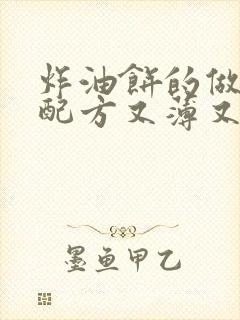 炸油餅的做
配方又薄又
墨鱼甲乙